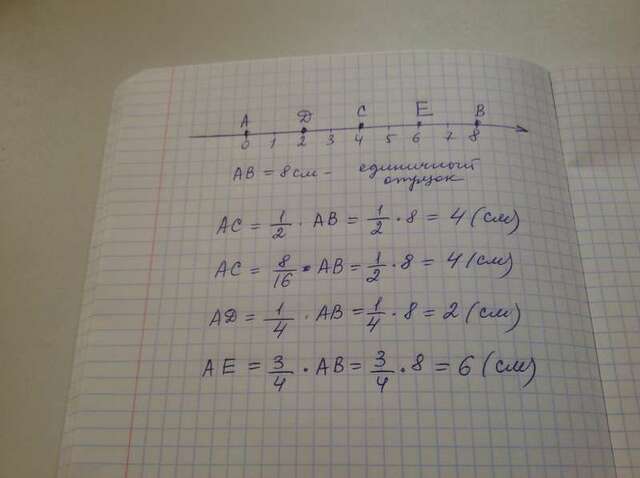 A D C E B
0 1 2 3 4 5 6 7 8
AB = 8 см – единичный
отрезок
AC = 1/2 · AB = 1/2 · 8 = 4 (см)
AC = 8/16 · AB = 1/2 · 8 = 4 (см)
AD = 1/4 · AB = 1/4 · 8 = 2 (см)
AE = 3/4 · AB = 3/4 · 8 = 6 (см)